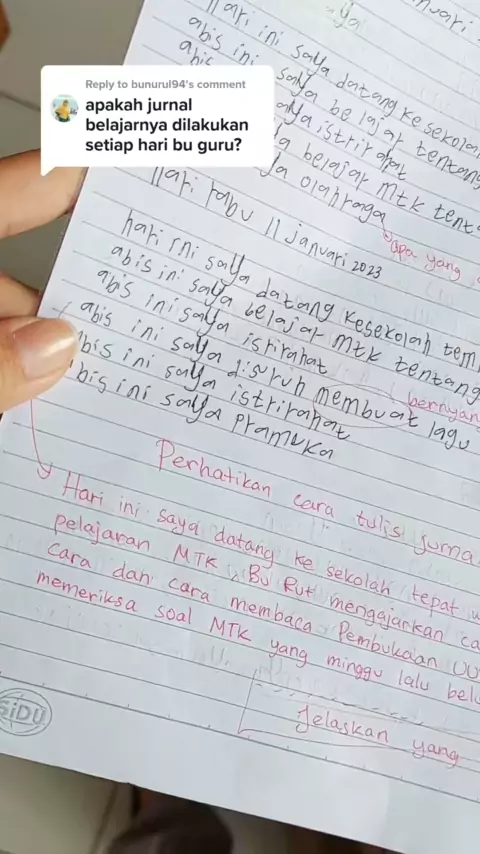 uari
aya
Hari ini saya datang kesekolah
abis ini saya belajar tentang
abis
aya istrirahat
a belajar MTK tent
ya olahraga
apa yang
Reply to bunurul94's comment
apakah jurnal
belajarnya dilakukan
setiap hari bu guru?
Hari rabu 11 januari 2023
hari ini saya datang kesekolah tem
abis ini saya belajar MTK tentang
abis ini saya istirahat
abis ini saya disuruh membuat lagu
bernyan
abis ini saya istrirahat
bis ini saya pramuka
Perhatikan cara tulis jurna
Hari ini saya datang ke sekolah tepat w
pelajaran MTK Bu Rut mengajarkan ca
cara dan cara membaca Pembukaan UU
memeriksa soal MTK yang minggu lalu belu
Jelaskan yang
SiDU